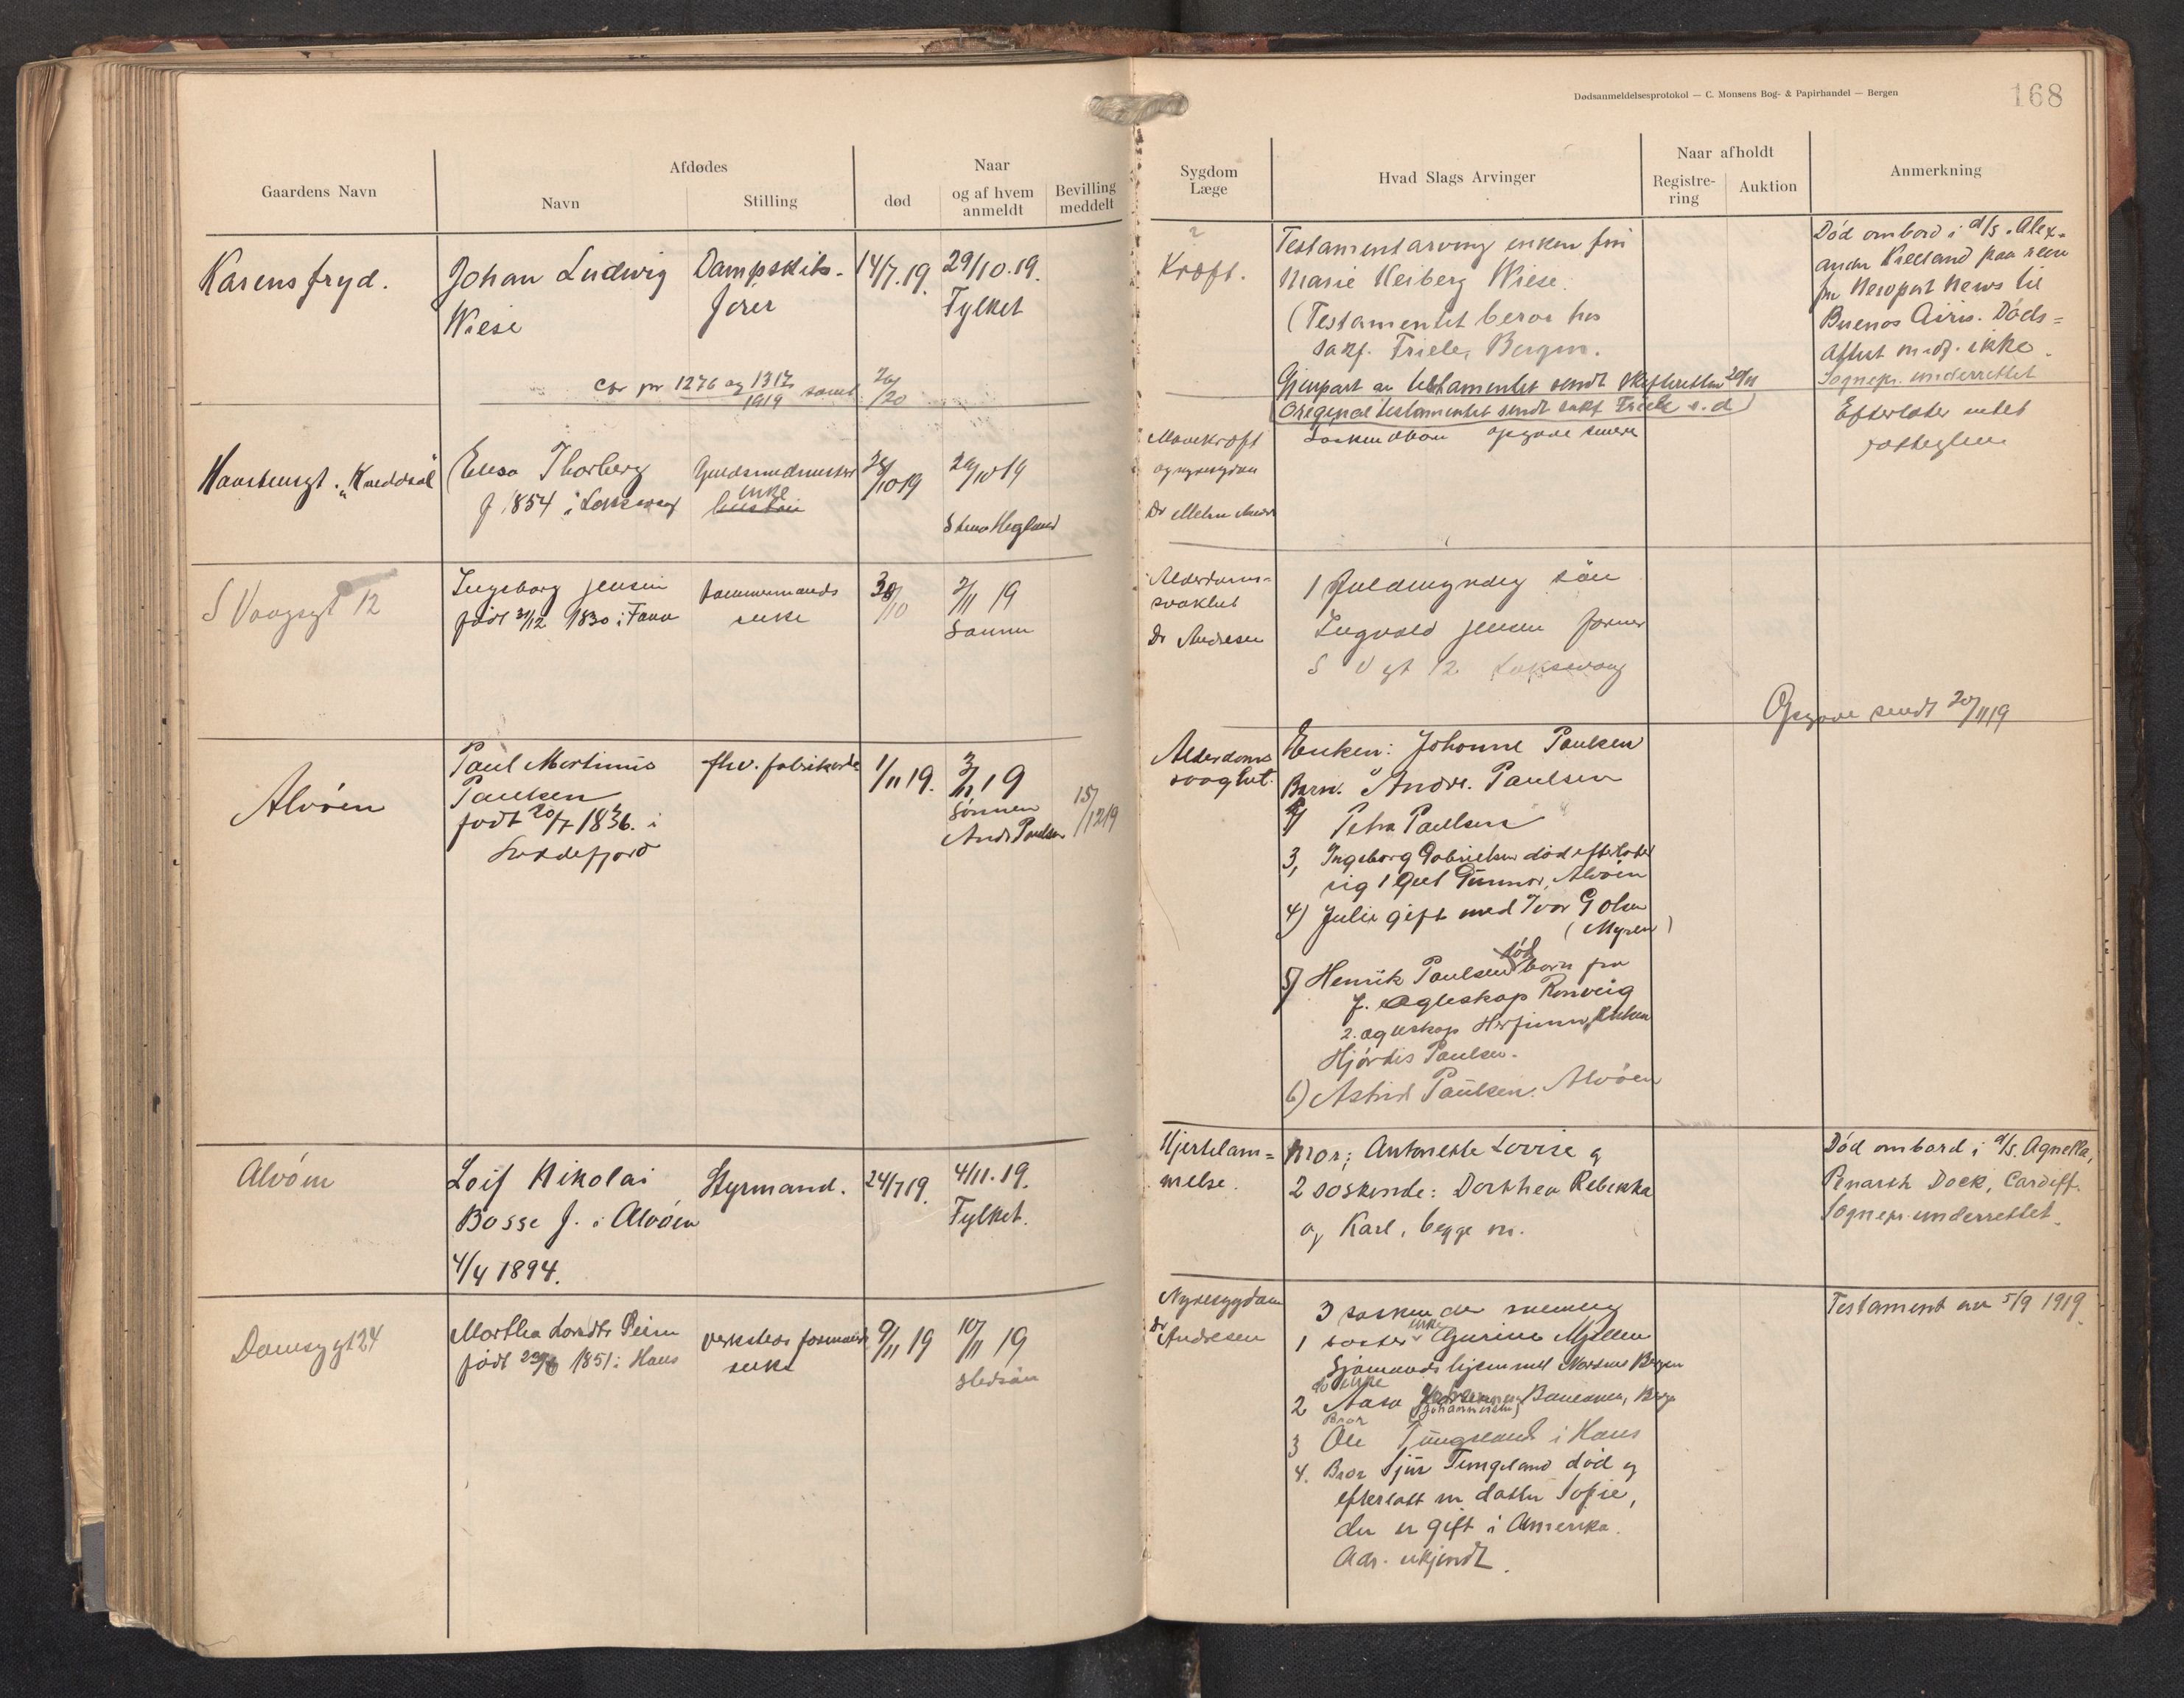 Dødsanmeldelsesprotokol — C. Monsens Bog- & Papirhandel — Bergen
168
Gaardens Navn
Afdødes
Navn
Stilling
død
Naar
og af hvem
anmeldt
Bevilling
meddelt
Sygdom
Læge
Hvad Slags Arvinger
Naar afholdt
Registre-
ring
Auktion
Anmerkning
Karensfryd.
Johan Ludwig
Wiese
Dampskibs-
fører
14/7.19.
29/10.19.
Fylket
Kræft.
Testamentarving enken fru
Marie Heiberg Wiese.
(Testamentet beror hos
sakf. Friele, Bergen.
Gjenpart av testamentet sendt skifteretten 20/11
(Originaltestamentet sendt sakf Friele s.d)
Død ombord i d/s "Alex-
ander Kielland paa reise
fra Newport News til
Buenos Aires. Døds=
attest medf. ikke.
Sognepr. underrettet
1276 og 1317
1919
samt
/20
Elisa Thorberg
f 1854 i
Guldsmedmester
enke
/10 19
/10 19
Mavekræft
og nyresygdom
Dr
Opgave senere
Efterlater intet
S Vaagsgt 12
Ingeborg Jensen
født 31/12 1830 i Fana
tømmermands
enke
30/10
2/11 19
Sønnen
Alderdoms-
svakhet
Dr Andresen
1 fuldmyndig søn
Ingvald Jensen former
S V gt 12 Laksevaag
Opgave sendt 20/11 19
Alvøen
Paul Martinus
Paulsen
født 20/7 1836. i
fhv. fabrikarb
1/11 19.
3/11 19
Sønnen
Andr Paulsen
15/12 19
Alderdoms
svaghet.
Enken: Johanne Paulsen
Barn. Andr. Paulsen
2) Petra Paulsen
3, Ingeborg Gabrielsen død efterlater
sig 1 Gut Gunnar, Alvøen
4) Julie gift med Ivar G Olsen
(Myren)
5) Henrik Paulsen død barn fra
1. egteskap Ronveig
2. egteskap
Hjørdis Paulsen.
6) Astrid Paulsen. Alvøen
Alvøen
Leif Nikolai
Bosse f. i Alvøen
4/4 1894.
Styrmand.
24/7 19.
4/11.19.
Fylket.
Hjertelam=
melse.
Mor; Antonette Lovise og
2 søskende: Dorthea Rebekka
og Karl, begge m.
Død ombord i d/s. Agnella,
Penarth Dock, Cardiff.
Sognepr. underrettet.
Damsgt 24
Martha
født 1851 i Haus
verksteds formands
enke
9/11 19
10/11 19
Stedsøn
Nyresygdom
Dr Andresen
3 søskende
1 søster enke Gurine
Sjømandshjemmet Nordnes Bergen
do enke
2 Aasa
(Johannessen)
Bror
3 Ole Tungeland i Haus
4. Bror Sjur Tungeland død og
efterlatt en datter Sofie,
der er gift i Amerika.
Adr. ukjendt.
Testament av 5/9 1919.